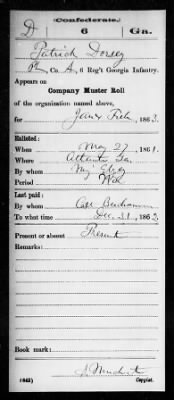 (Confederate.)
D 6 Ga.
Patrick Dorsey
Co. A, 6 Reg't Georgia Infantry.
Appears on
Company Muster Roll
of the organization named above,
for Jan & Feb, 1863.
Enlisted:
When May 27, 1861.
Where Atlanta Ga.
By whom Maj
Period War
Last paid:
By whom Capt
To what time Dec 31, 1862
Present or absent Present
Remarks:
Book mark:
(642)
Copyist.